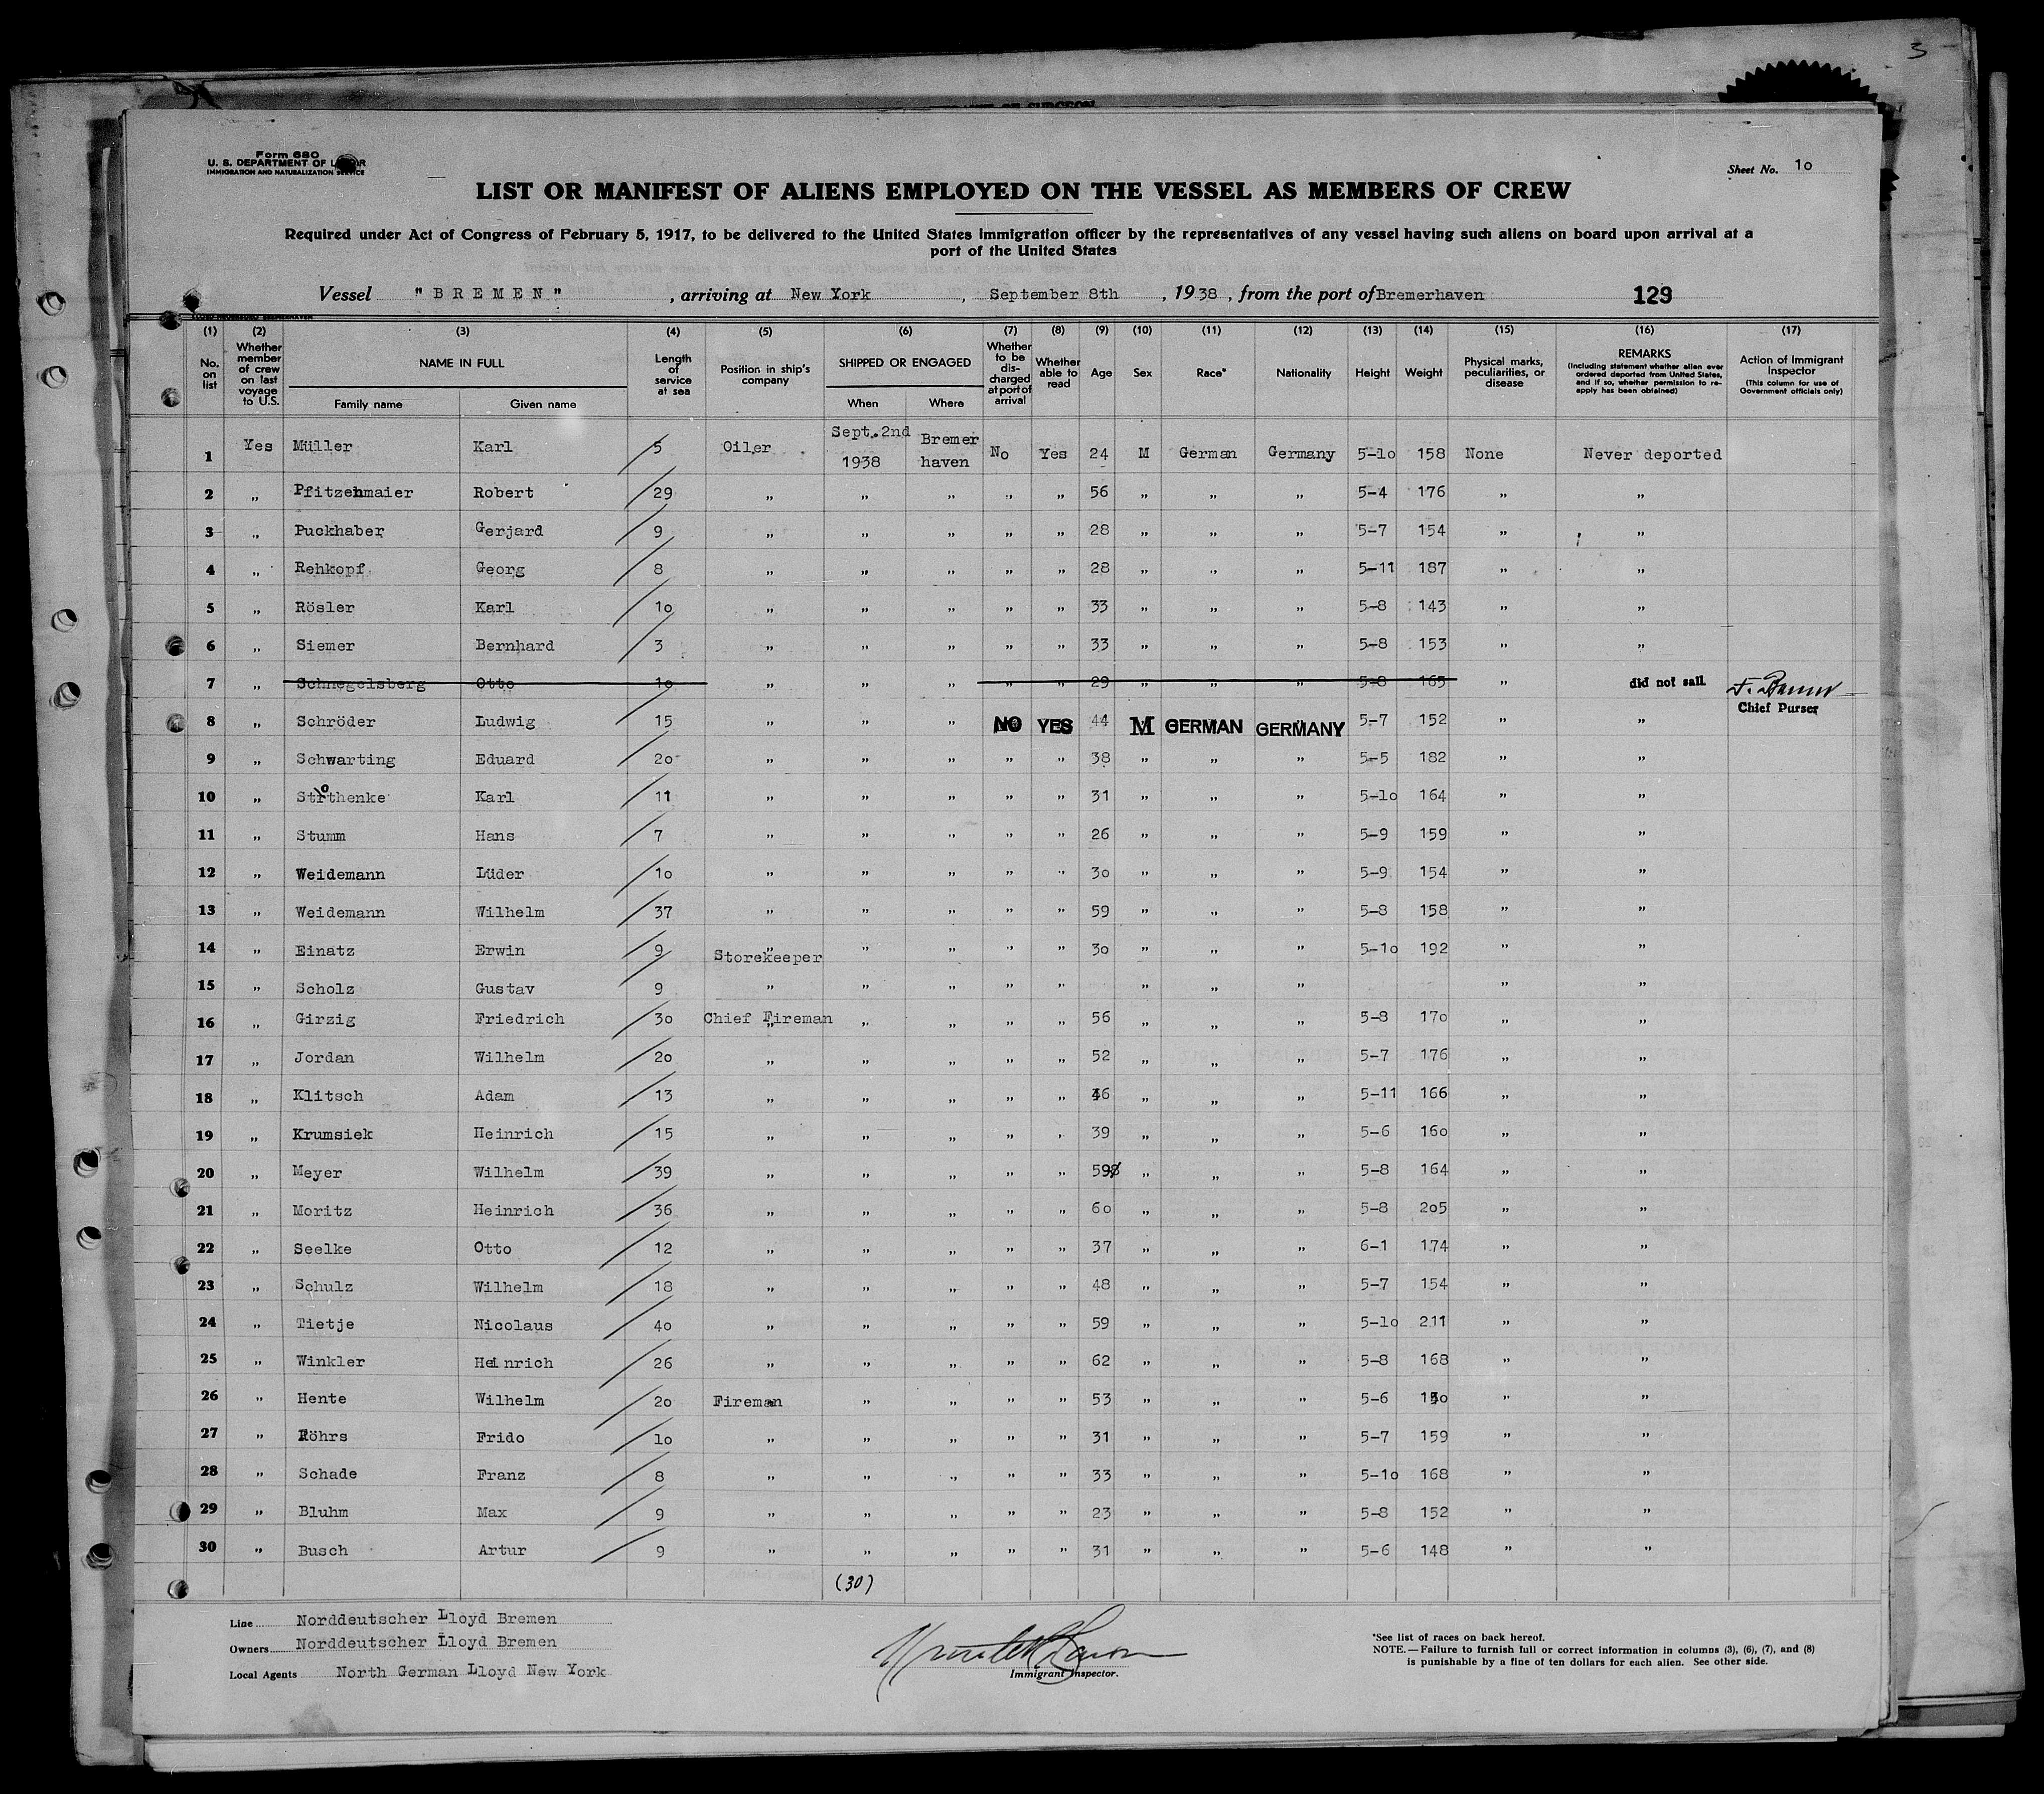 3
Form 680
U. S. DEPARTMENT OF LABOR
IMMIGRATION AND NATURALIZATION SERVICE
Sheet No. 1o
LIST OR MANIFEST OF ALIENS EMPLOYED ON THE VESSEL AS MEMBERS OF CREW
Required under Act of Congress of February 5, 1917, to be delivered to the United States immigration officer by the representatives of any vessel having such aliens on board upon arrival at a
port of the United States
Vessel "BREMEN", arriving at New York, September 8th, 1938, from the port of Bremerhaven 129
(1) (2) (3) (4) (5) (6) (7) (8) (9) (10) (11) (12) (13) (14) (15) (16) (17)
No. on list
Whether member of crew on last voyage to U.S.
NAME IN FULL
Family name Given name
Length of service at sea
Position in ship's company
SHIPPED OR ENGAGED
When Where
Whether to be discharged at port of arrival
Whether able to read
Age
Sex
Race*
Nationality
Height
Weight
Physical marks, peculiarities, or disease
REMARKS
(Including statement whether alien ever ordered deported from United States, and if so, whether permission to reapply has been obtained)
Action of Immigrant Inspector
(This column for use of Government officials only)
1 Yes Müller Karl 5 Oiler Sept. 2nd 1938 Bremer haven No Yes 24 M German Germany 5-1o 158 None Never deported
2 " Pfitzenmaier Robert 29 " " " " " 56 " " " 5-4 176 " "
3 " Puckhaber Gerjard 9 " " " " " 28 " " " 5-7 154 " "
4 " Rehkopf Georg 8 " " " " " 28 " " " 5-11 187 " "
5 " Rösler Karl 1o " " " " " 33 " " " 5-8 143 " "
6 " Siemer Bernhard 3 " " " " " 33 " " " 5-8 153 " "
7 " Schnegelsberg Otto 1o " " " " " 29 " " " 5-8 165 " did not sail
Chief Purser
8 " Schröder Ludwig 15 " " " NO YES 44 M GERMAN GERMANY 5-7 152 " "
9 " Schwarting Eduard 2o " " " " " 38 " " " 5-5 182 " "
10 " Strothenke Karl 11 " " " " " 31 " " " 5-1o 164 " "
11 " Stumm Hans 7 " " " " " 26 " " " 5-9 159 " "
12 " Weidemann Lüder 1o " " " " " 3o " " " 5-9 154 " "
13 " Weidemann Wilhelm 37 " " " " " 59 " " " 5-8 158 " "
14 " Einatz Erwin 9 Storekeeper " " " " 3o " " " 5-1o 192 " "
15 " Scholz Gustav 9 " " " " " " " " " "
16 " Girzig Friedrich 3o Chief Fireman " " " " 56 " " " 5-8 17o " "
17 " Jordan Wilhelm 2o " " " " " 52 " " " 5-7 176 " "
18 " Klitsch Adam 13 " " " " " " " " 5-11 166 " "
19 " Krumsiek Heinrich 15 " " " " " 39 " " " 5-6 16o " "
20 " Meyer Wilhelm 39 " " " " " 59 " " " 5-8 164 " "
21 " Moritz Heinrich 36 " " " " " 6o " " " 5-8 2o5 " "
22 " Seelke Otto 12 " " " " " 37 " " " 6-1 174 " "
23 " Schulz Wilhelm 18 " " " " " 48 " " " 5-7 154 " "
24 " Tietje Nicolaus 4o " " " " " 59 " " " 5-1o 211 " "
25 " Winkler Heinrich 26 " " " " " 62 " " " 5-8 168 " "
26 " Hente Wilhelm 2o Fireman " " " " 53 " " " 5-6 " "
27 " Röhrs Frido 1o " " " " " 31 " " " 5-7 159 " "
28 " Schade Franz 8 " " " " " 33 " " " 5-1o 168 " "
29 " Bluhm Max 9 " " " " " 23 " " " 5-8 152 " "
30 " Busch Artur 9 " " " " " 31 " " " 5-6 148 " "
(30)
Line Norddeutscher Lloyd Bremen
Owners Norddeutscher Lloyd Bremen
Local Agents North German Lloyd New York
Immigrant Inspector.
*See list of races on back hereof.
NOTE.—Failure to furnish full or correct information in columns (3), (6), (7), and (8)
is punishable by a fine of ten dollars for each alien. See other side.